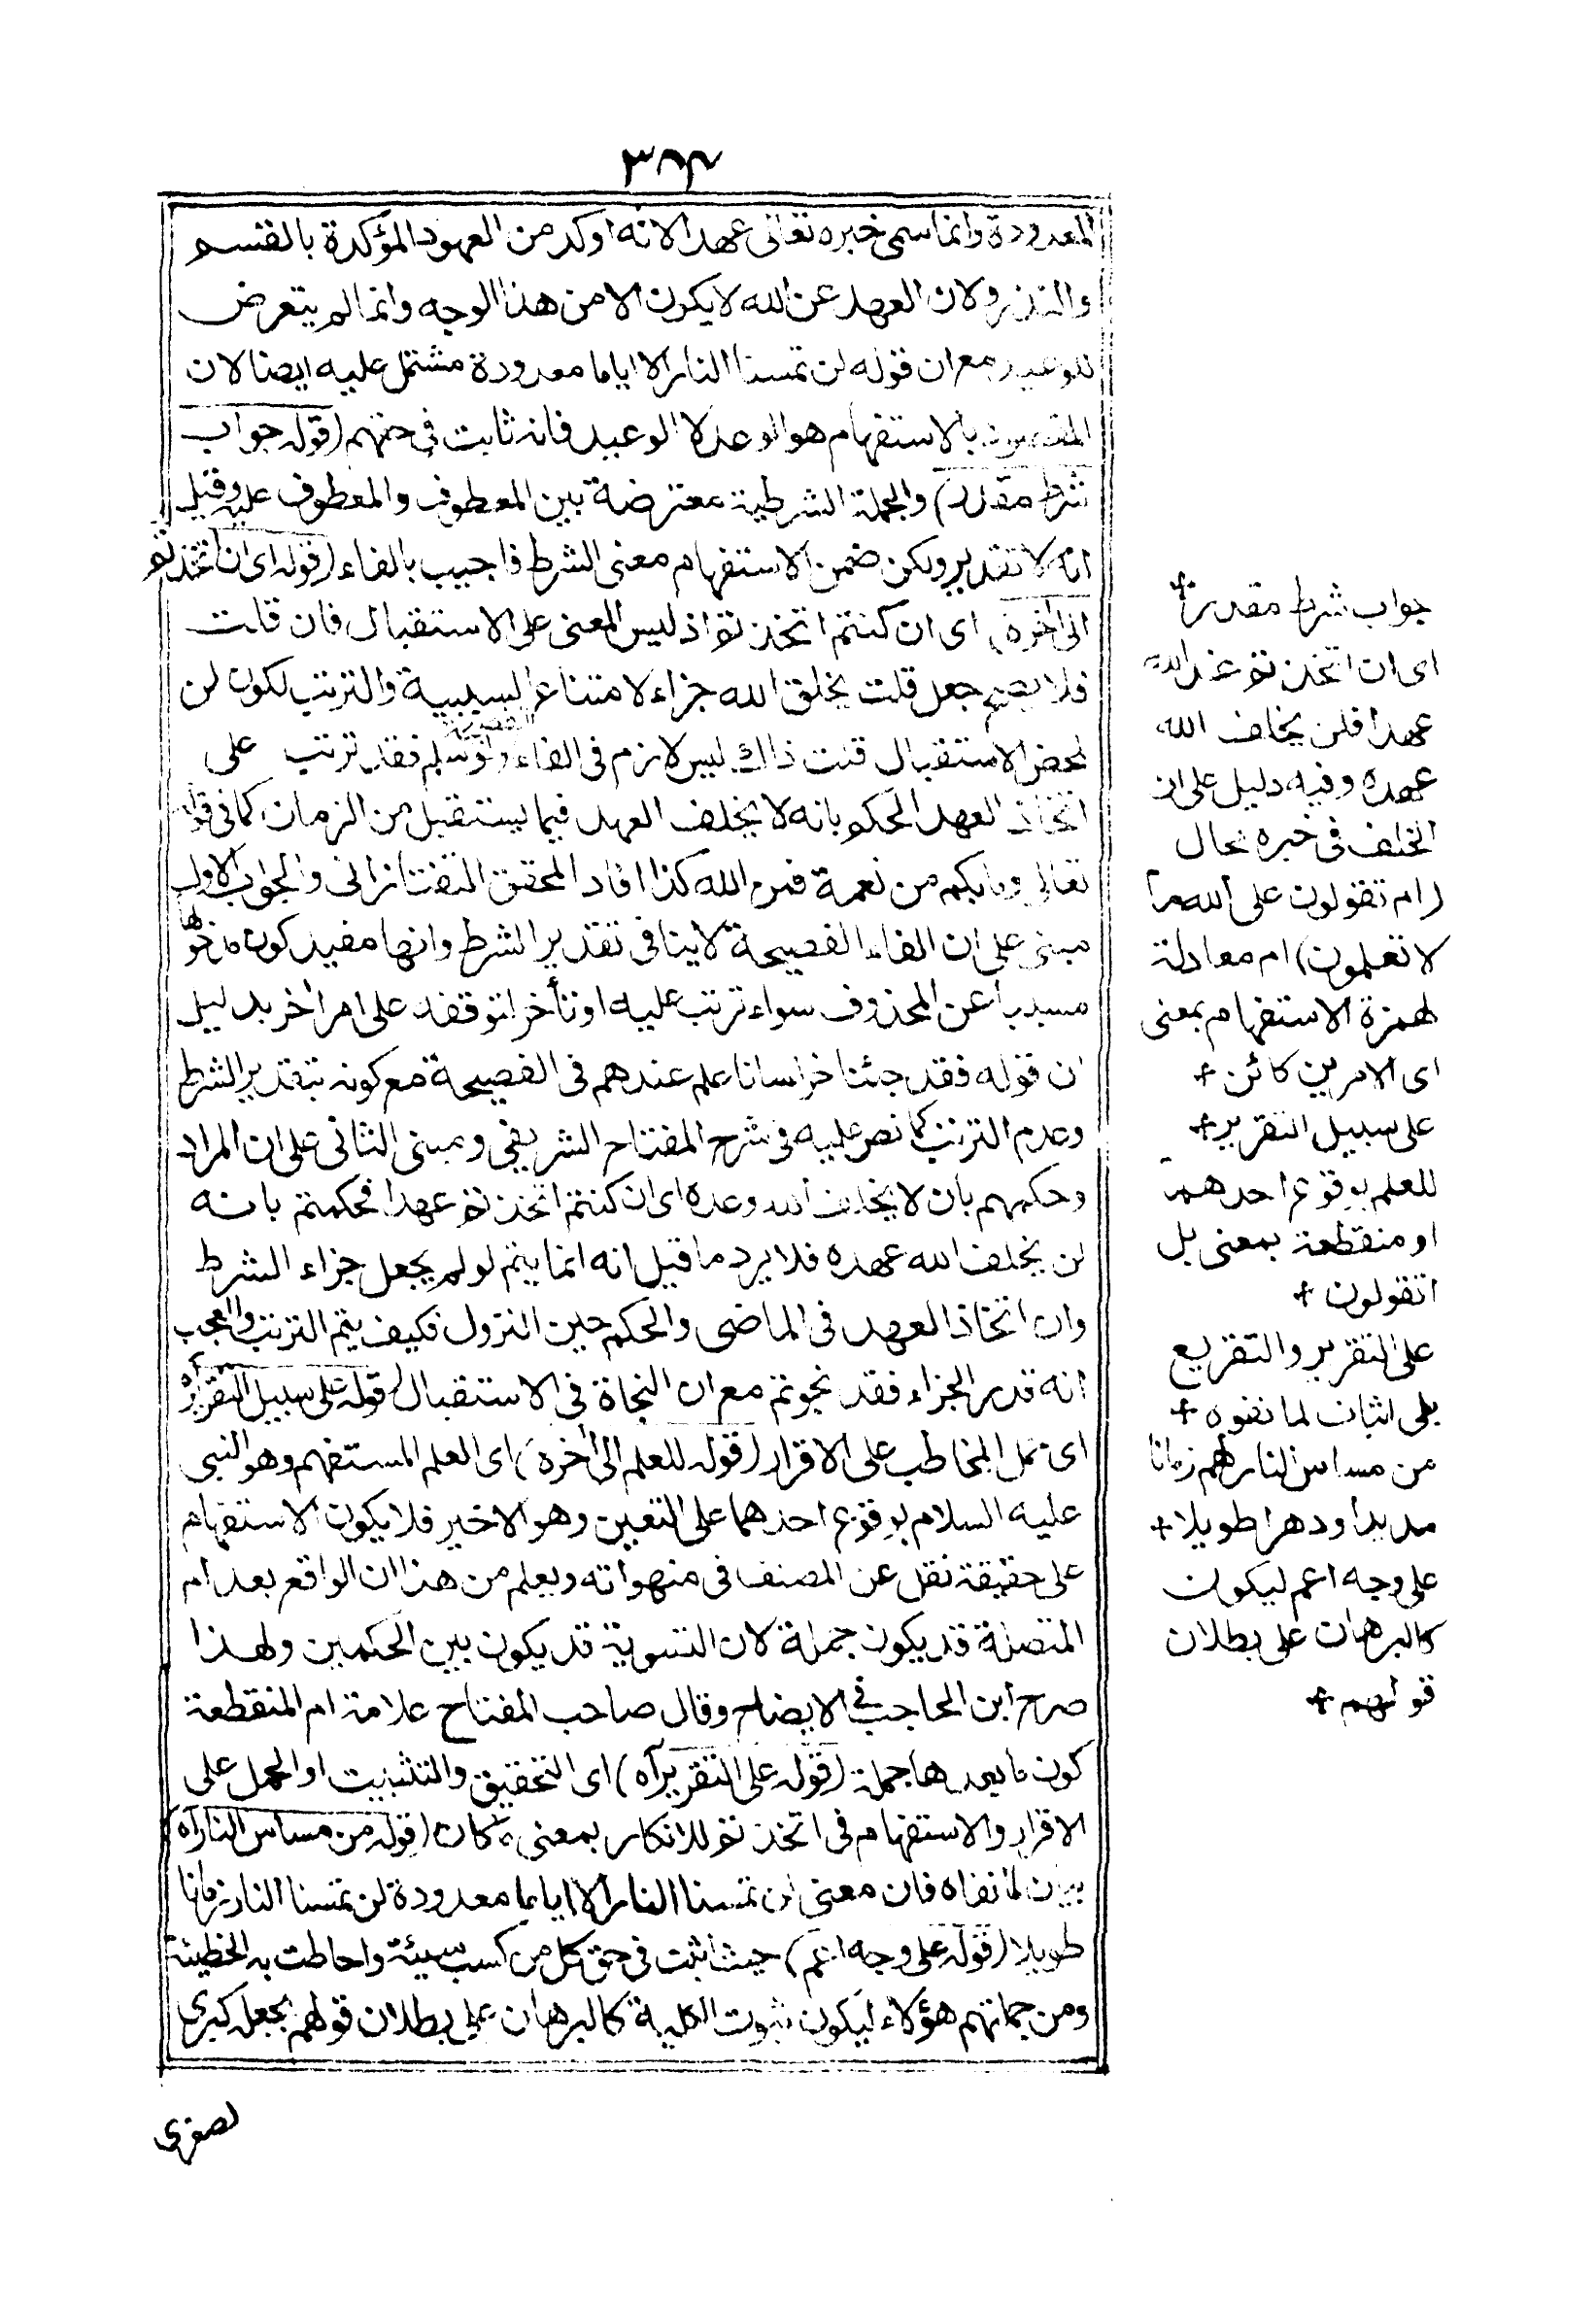 ٣٨٤
المعدودة وانما سمى خبره تعالى عهدا لانه اوكد من العهود المؤكدة بالقسم
والنذر ولان العهد عن الله لا يكون الا من هذا الوجه وانما لم يتعرض
للوعيد مع ان قوله لن تمسنا النار الا اياما معدودة مشتمل عليه ايضا لان
المقصود بالاستفهام هو الوعد لا الوعيد فانه ثابت فى حقهم (قوله جواب
شرط مقدر) والجملة الشرطية معترضة بين المعطوف والمعطوف عليه وقيل
انه لا تقدير ولكن ضمن الاستفهام معنى الشرط فاجيب بالفاء (قوله اى ان اتخذتم
الى آخره) اى ان كنتم اتخذتم اذ ليس المعنى على الاستقبال فان قلت
فلا يصح جعل فلن يخلف الله جزاء لامتناع السببية والترتب لكون لن
لمحض الاستقبال قلت ذلك ليس لازم فى الفاء الفصيحة ولو سلم فقد ترتب على
اتخاذ العهد الحكم بانه لا يخلف العهد فيما يستقبل من الزمان كما فى قوله
تعالى وما بكم من نعمة فمن الله كذا افاد المحقق التفتازانى والجواب الاول
مبنى على ان الفاء الفصيحة لا ينافى تقدير الشرط وانها مفيد كون ما دخولها
مسببا عن المحذوف سواء ترتب عليه او تأخر لتوقفه على امر آخر بدليل
ان قوله فقد جئنا خراسانا علم عندهم فى الفصيحة مع كونه بتقدير الشرط
وعدم الترتب كما نص عليه فى شرح المفتاح الشريفى ومبنى الثانى على ان المراد
وحكمهم بان لا يخلف الله وعده اى ان كنتم اتخذتم عهدا فحكمتم بانه
لن يخلف الله عهده فلا يرد ما قيل انه انما يتم لو لم يجعل جزاء الشرط
وان اتخاذ العهد فى الماضى والحكم حين النزول فكيف يتم الترتب والعجب
انه قدر الجزاء فقد نجوتم مع ان النجاة فى الاستقبال (قوله على سبيل التقرير اه)
اى حمل المخاطب على الاقرار (قوله للعلم الى آخره) اى العلم المستفهم وهو النبى
عليه السلام بوقوع احدهما على التعيين وهو الاخير فلا يكون الاستفهام
على حقيقة نقل عن المصنف فى منهواته ويعلم من هذا ان الواقع بعد ام
المتصلة قد يكون جملة لان التسوية قد يكون بين الحكمين ولهذا
صرح ابن الحاجب فى الايضاح وقال صاحب المفتاح علامة ام المنقطعة
كون ما بعدها جملة (قوله على التقرير آه) اى التحقيق والتثبيت او الحمل على
الاقرار والاستفهام فى اتخذتم للانكار بمعنى ما كان (قوله من مساس النار آه)
بيان لما نفاه فان معنى لن تمسنا النار الا اياما معدودة لن تمسنا النار زمانا
طويلا (قوله على وجه اعم) حيث اثبت فى حق كل من كسب سيئة واحاطت به الخطيئة
ومن جملتهم هؤلاء ليكون ثبوت الكلية كالبرهان على بطلان قولهم بجعله كبرى
لصغرى
جواب شرط مقدر +
اى ان اتخذتم عند الله
عهدا فلن يخلف الله
عهده وفيه دليل على ان
الخلف فى خبره محال
(ام تقولون على الله ما
لا تعلمون) ام معادلة
لهمزة الاستفهام بمعنى
اى الامرين كائن +
على سبيل التقرير +
للعلم بوقوع احدهما
او منقطعة بمعنى بل
اتقولون +
على التقرير والتقريع
بلى اثبات لما نفوه +
من مساس النار لهم زمانا
مديدا ودهرا طويلا +
على وجه اعم ليكون
كالبرهان على بطلان
قولهم +